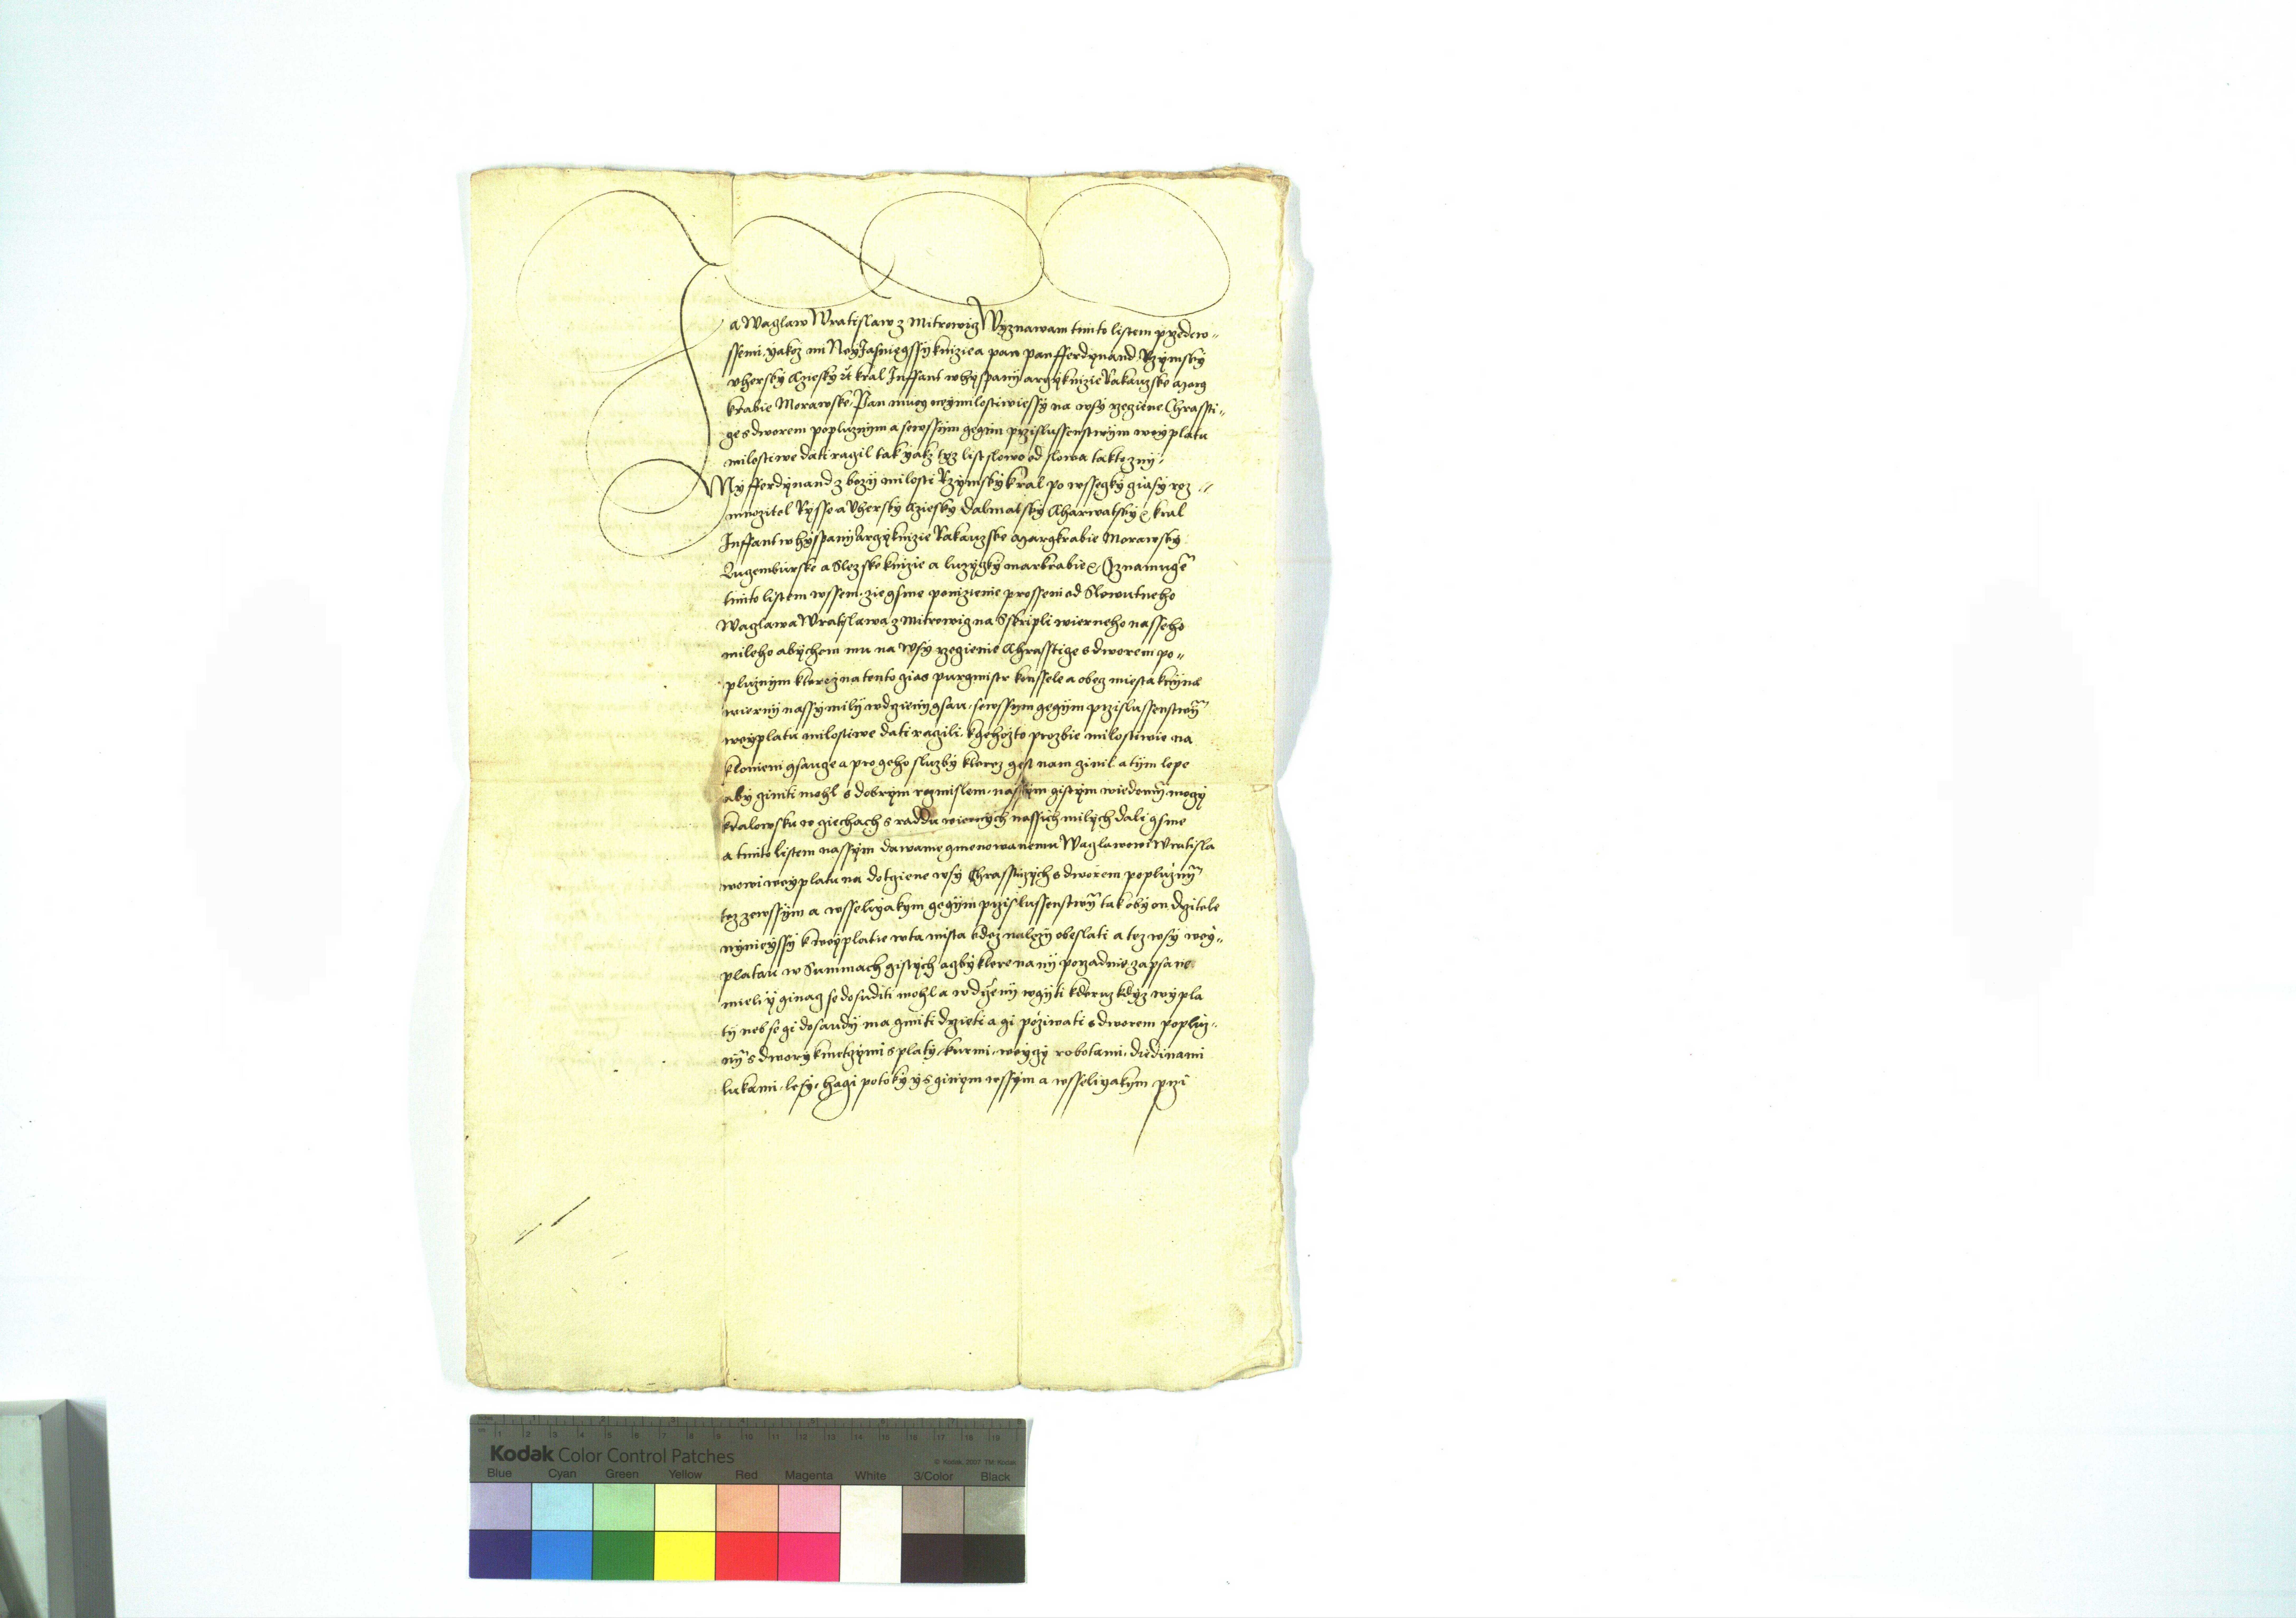 Ja Waczlaw Wratislaw z Mitrowicz Wyznawam tiimto listem przedew„
ssemi, yakoz mi Nayjasniegssy knizie a pan pan fferdynand Rzymsky
uhersky Cziesky ꝛc kral Inffant w hyspany arczyknizie Rakauzske Marg
krabie Morawske, Pan muog neymilostiwiessy na wsy rzeczene Chrassti„
ge s dworem popluznym a sewssym gegim przislussenstwym weyplatu
milostiwe dati raczil tak yakz tyz list slowo od slowa takto zny:
My fferdynand z bozy milosti Rzymsky kral po wsseczky cziasy roz„
mnozitel Rysse a Uhersky Cziesky Dalmatsky Charwatsky ꝛc kral
Inffant w hyspany Arczyknizie Rakauzske Margkrabie Morawsky
Luczemburske a Slezske knizie a luzyczky markrabie ꝛc, Oznamugem
tiimto listem wssem, zie gsme ponizienie prosseni od Slowutneho
Waczlawa Wratislawa z Mitrowicz na Sskripli wierneho nasseho
mileho abychom mu na Wsy rzeczienie Chrasstige s dworem po„
pluznym kterez na tento czias purgmistr konssele a obecz miesta
wierny nassy mily w drzieny gsau, sewssym gegym przislussenstwym
weyplatu milostiwe dati raczili, k gehozto prozbie milostiwie na
klonieni gsaucze a pro geho sluzby kterez gest nam czinil a tym lepe
aby cziniti mohl s dobrym rozmislem, nassym gistym wiedomim, moczy
kralowsku w cziechach s raddu wiernych nassich milych dali gsme
a tiimto listem nassym dawame gmenowanemu Waczlawowi Wratisla
wowi weyplatu na dotcziene wsy Chrassticzych s dworem popluznym
tez zewssym a wsseligakym gegym przislussenstwym tak oby on drzitele
nyniegssy k weyplatie w ta mista kdez nalezy obeslati a tez wsy wey„
platau w Summach gistych aczby ktere na ny porzadnie zapsane
mieli y ginacz se dosuditi mohl a w drzieny wgyti kteruz kdyz wypla
ty neb se gi dosaudy ma gmiti drzieti a gi poziwati s dworem popluz„
nym s dwory kmetczymi s platy, kurmi, weyczy robotami, diedinami
lukami, lesy, hagi potoky y s ginym wssym a wsseligakym przi
Kodak Color Control Patches
© Kodak, 2007 TM: Kodak
Blue Cyan Green Yellow Red Magenta White 3/Color Black